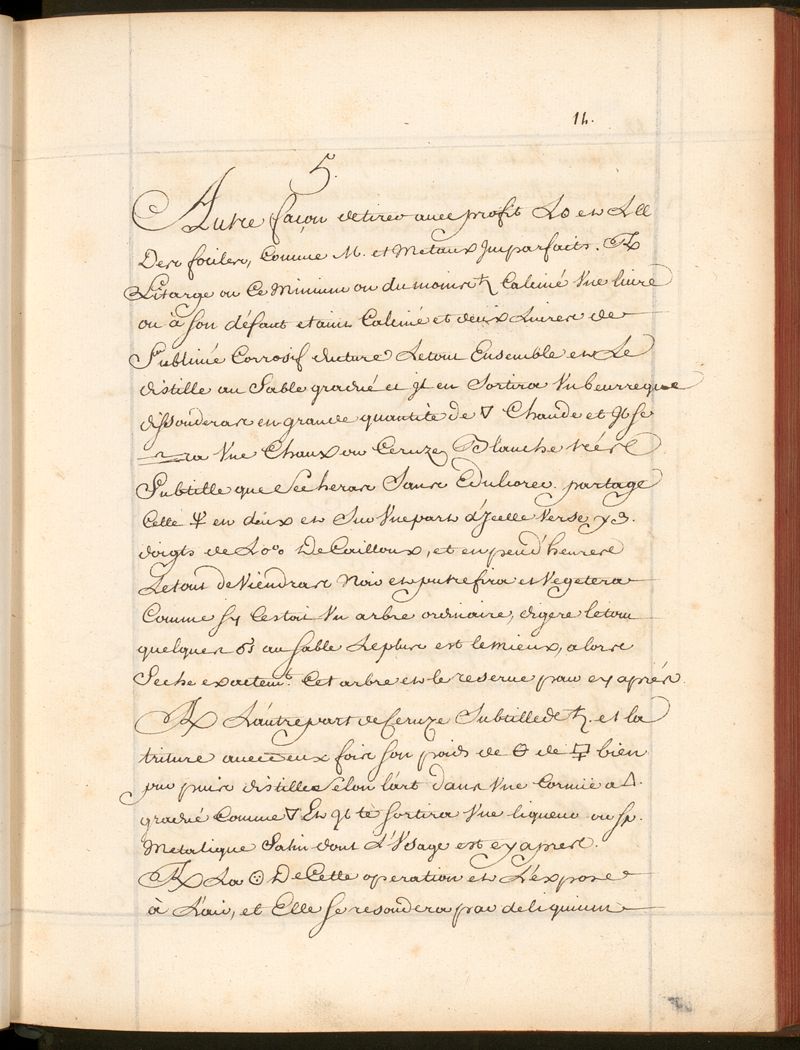 14.
5.
Autre façon de tirer avec profit L'☉ et L
Des fociles, Comme M. et Metaux Imparfaits. ℞
Litarge ou Ce Minium ou du moins ♄ Calciné Vne livre
ou à son défaut etain Calciné et deux Livres de
Sublimé Corrosif triture Le tout Ensemble et Le
distille au Sable gradué et jl en Sortira Vn beurre que
dissouderas en grande quantité de ▽ Chaude et Jl se
ra Vne Chaux ou Ceruze Blanche trés
Subtille que Secheras Sans Edulcorer. partage
Cette en deux et Sur Vne part d'Jcelle Verse y 3.
doigts de L De Cailloux, et en peu d'heures
Le tout deViendras Noir et putrefira et Vegetera
Comme sy Cestoit Vn arbre ordinaire, digere le tout
quelques au sable Le plus est le mieux, alors
Seche exactemt. Cet arbre et le reserue pour cy aprés
℞ L'autre part de Ceruze Subtille de ♄. et la
triture avec deux fois son poids de de bien
pur puis distille Selon l'art dans Vne Cornüe a △.
gradué Comme ▽ Et jl te sortira Vne liqueur ou sp.
Metalique Salin dont L'Vsage est cy apres.
℞ La De Cette operation et L'expose
à L'air, et Elle se resoudera par deliquium